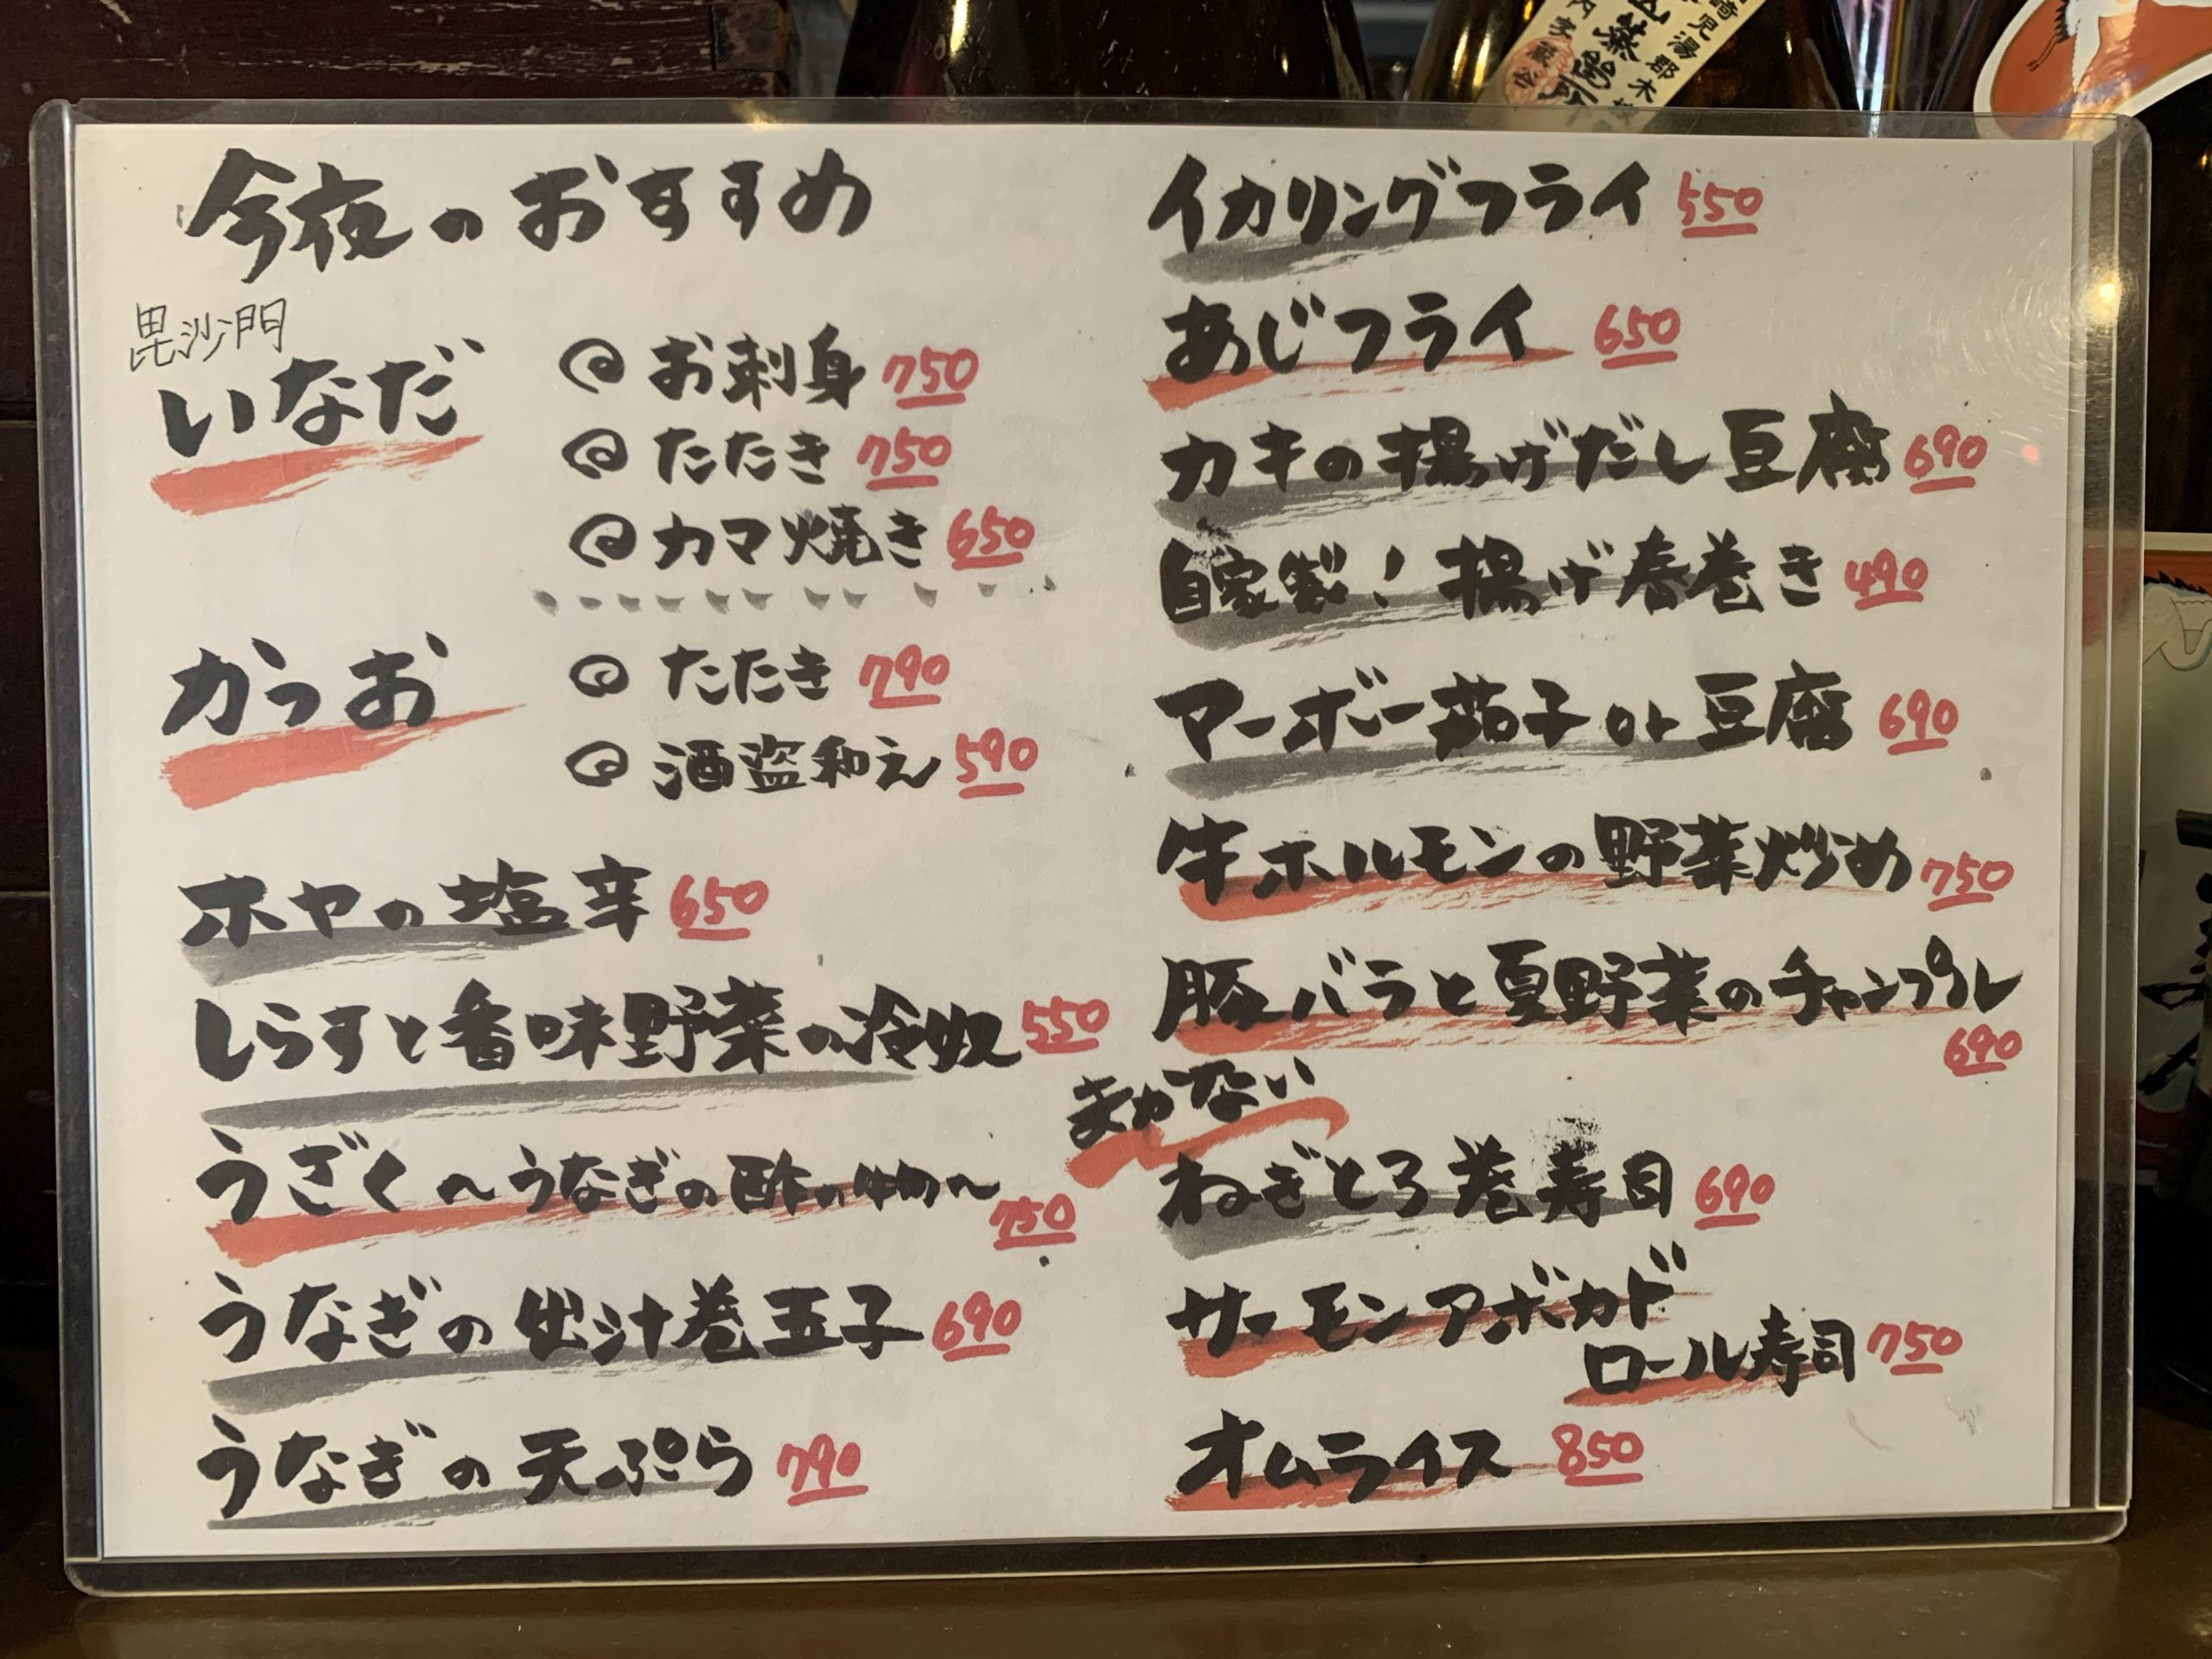 今夜のおすすめ
毘沙門
いなだ
お刺身 750
たたき 750
カマ焼き 650
かつお
たたき 790
酒盗和え 590
ホヤの塩辛 650
しらすと香味野菜の冷奴 550
うざく〜うなぎの酢の物〜
750
うなぎの出汁巻玉子 690
うなぎの天ぷら 790
イカリングフライ 550
あじフライ 650
カキの揚げだし豆腐 690
自家製！揚げ春巻き 490
マーボー茄子or豆腐 690
牛ホルモンの野菜炒め 750
豚バラと夏野菜のチャンプル
690
まかない
ねぎとろ巻寿司 690
サーモンアボカド
ロール寿司 750
オムライス 850
児湯郡木